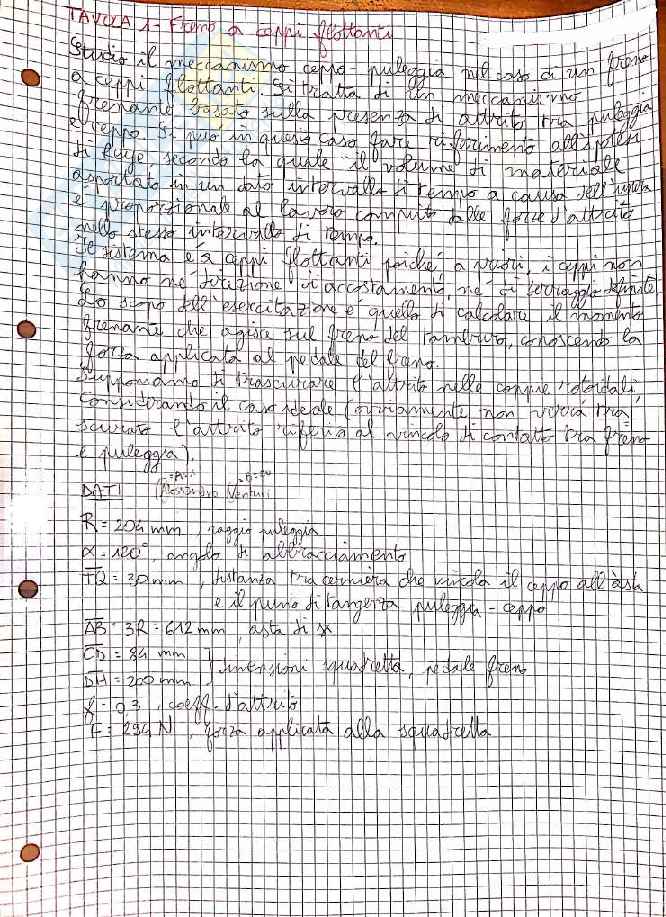 TAVOLA 1 - Freno a ceppi flottanti
Studio il meccanismo ceppo-puleggia nel caso di un freno
a ceppi flottanti. Si tratta di un meccanismo
frenante basato sulla presenza di attrito tra puleggia
e ceppo. Si può in questo caso fare riferimento all'ipotesi
di Reye, secondo la quale il volume di materiale
asportato in un dato intervallo di tempo a causa dell'usura
è proporzionale al lavoro compiuto dalle forze d'attrito
nello stesso intervallo di tempo.
Il sistema è a ceppi flottanti poiché, a vuoto, i ceppi non
hanno né direzione di accostamento, né di serraggio definite
Lo scopo dell'esercitazione è quello di calcolare il momento
frenante che agisce sul freno del tamburo, conoscendo la
forza applicata al pedale del freno.
Supponiamo di trascurare l'attrito nelle coppie rotoidali,
considerando il caso ideale (ovviamente non verrà tra=
scurato l'attrito riferito al vincolo di contatto tra freno
e puleggia).
DATI (Alessandro Venturi
R = 204 mm, raggio puleggia
α = 120°, angolo di abbracciamento
TQ = 30 mm, distanza tra cerniera che vincola il ceppo all'asta
e il punto di tangenza puleggia - ceppo
AB = 3R = 612 mm, asta di sx
CD = 84 mm
DH = 200 mm } dimensioni squadretta, pedale freno
f = 0,3, coeff. d'attrito
F = 294 N, forza applicata alla squadretta